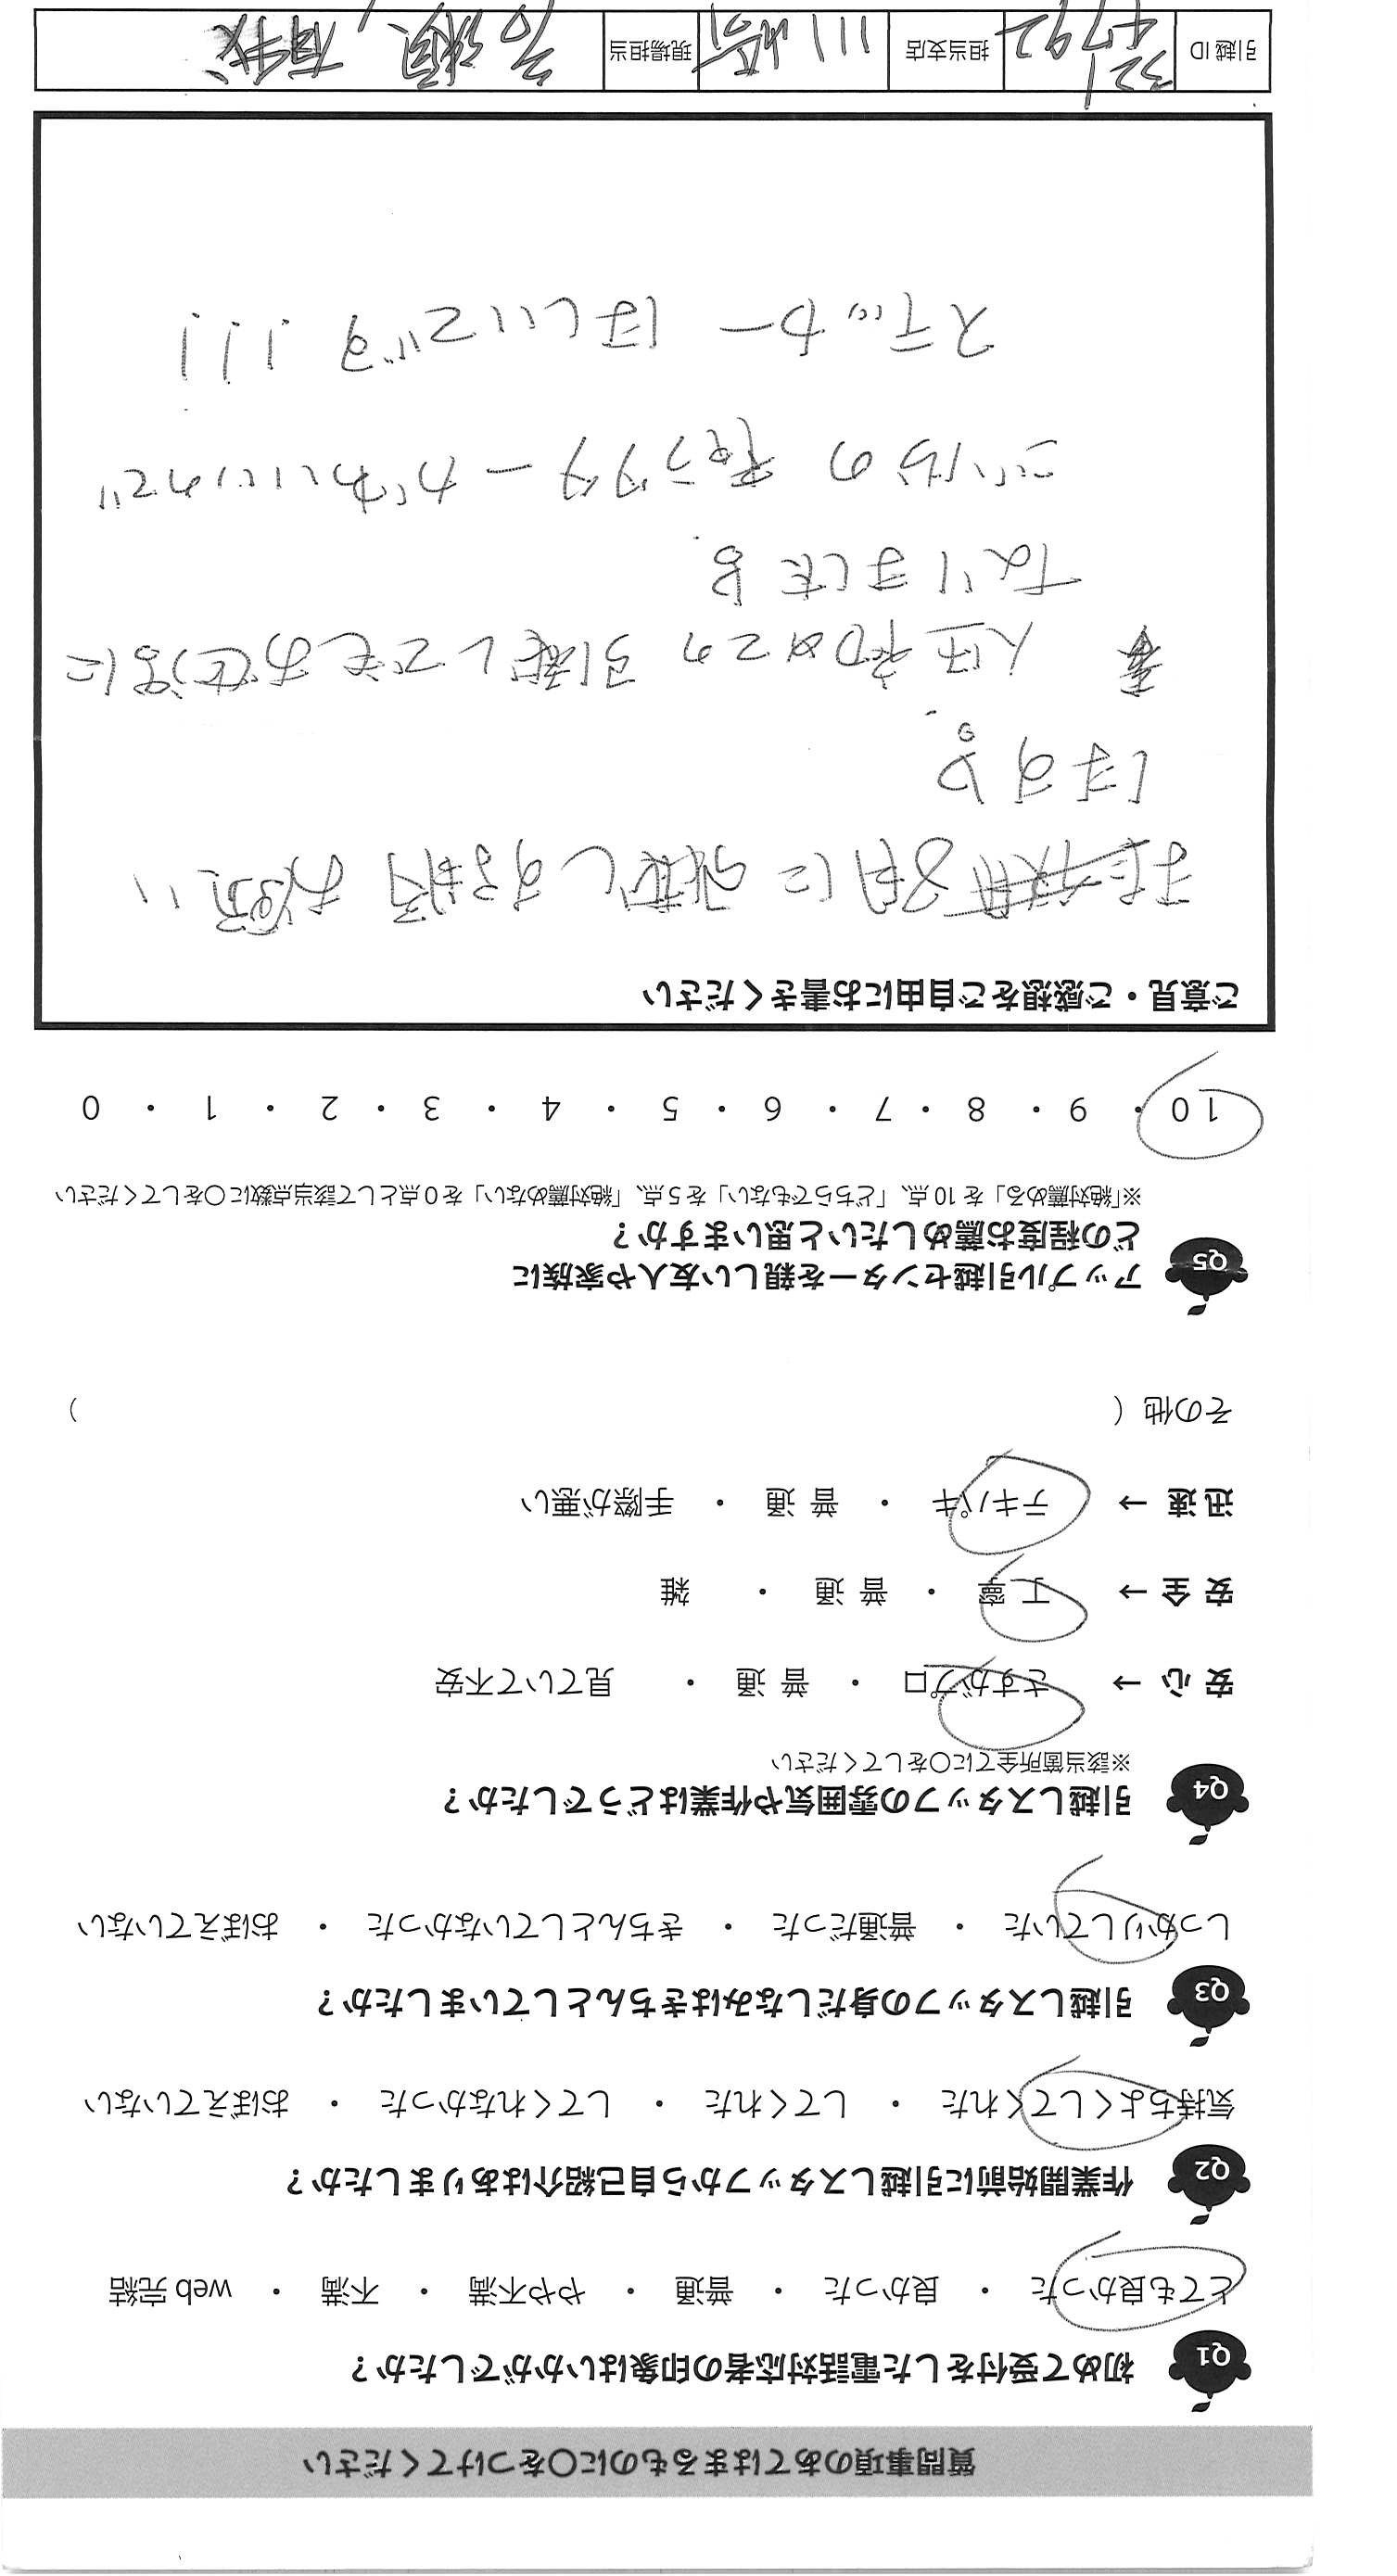 質問事項のあてはまるものに○をつけてください
Q1 初めて受付をした電話対応者の印象はいかがでしたか？
とても良かった ・ 良かった ・ 普通 ・ やや不満 ・ 不満 ・ web 完結
Q2 作業開始前に引越しスタッフから自己紹介はありましたか？
気持ちよくしてくれた ・ してくれた ・ してくれなかった ・ おぼえていない
Q3 引越しスタッフの身だしなみはきちんとしていましたか？
しっかりしていた ・ 普通だった ・ きちんとしていなかった ・ おぼえていない
Q4 引越しスタッフの雰囲気や作業はどうでしたか？
※該当箇所全てに○をしてください
安 心 → さすがプロ ・ 普 通 ・ 見ていて不安
安 全 → 丁 寧 ・ 普 通 ・ 雑
迅 速 → テキパキ ・ 普 通 ・ 手際が悪い
その他（ ）
Q5 アップル引越センターを親しい友人や家族に
どの程度お薦めしたいと思いますか？
※「絶対薦める」を 10 点、「どちらでもない」を 5 点、「絶対薦めない」を 0 点として該当点数に○をしてください
10 ・ 9 ・ 8 ・ 7 ・ 6 ・ 5 ・ 4 ・ 3 ・ 2 ・ 1 ・ 0
ご意見・ご感想をご自由にお書きください
また 8月に 引越しする時 お願い
します。
人生初めての 引越しでもお世話に
なりました
こちらの キャラクターかわいいので
ステッカー ほしいです!!!
引越 ID 4792 担当支店 川崎 現場担当